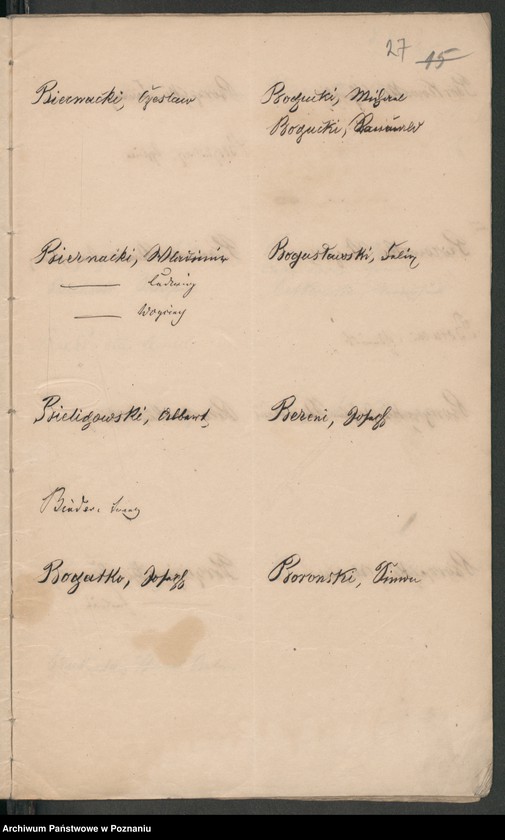 27 15
Biernacki, Czesław
Bogucki, Michael
Bogucki,
Biernacki, Wladimir
Ludwig
Woyciech
Bogusławski, Felix
Bieligowski, Albert
Bereni, Joseph
Binder, Franz
Bogatko, Joseph
Boronski, Simon
Archiwum Państwowe w Poznaniu